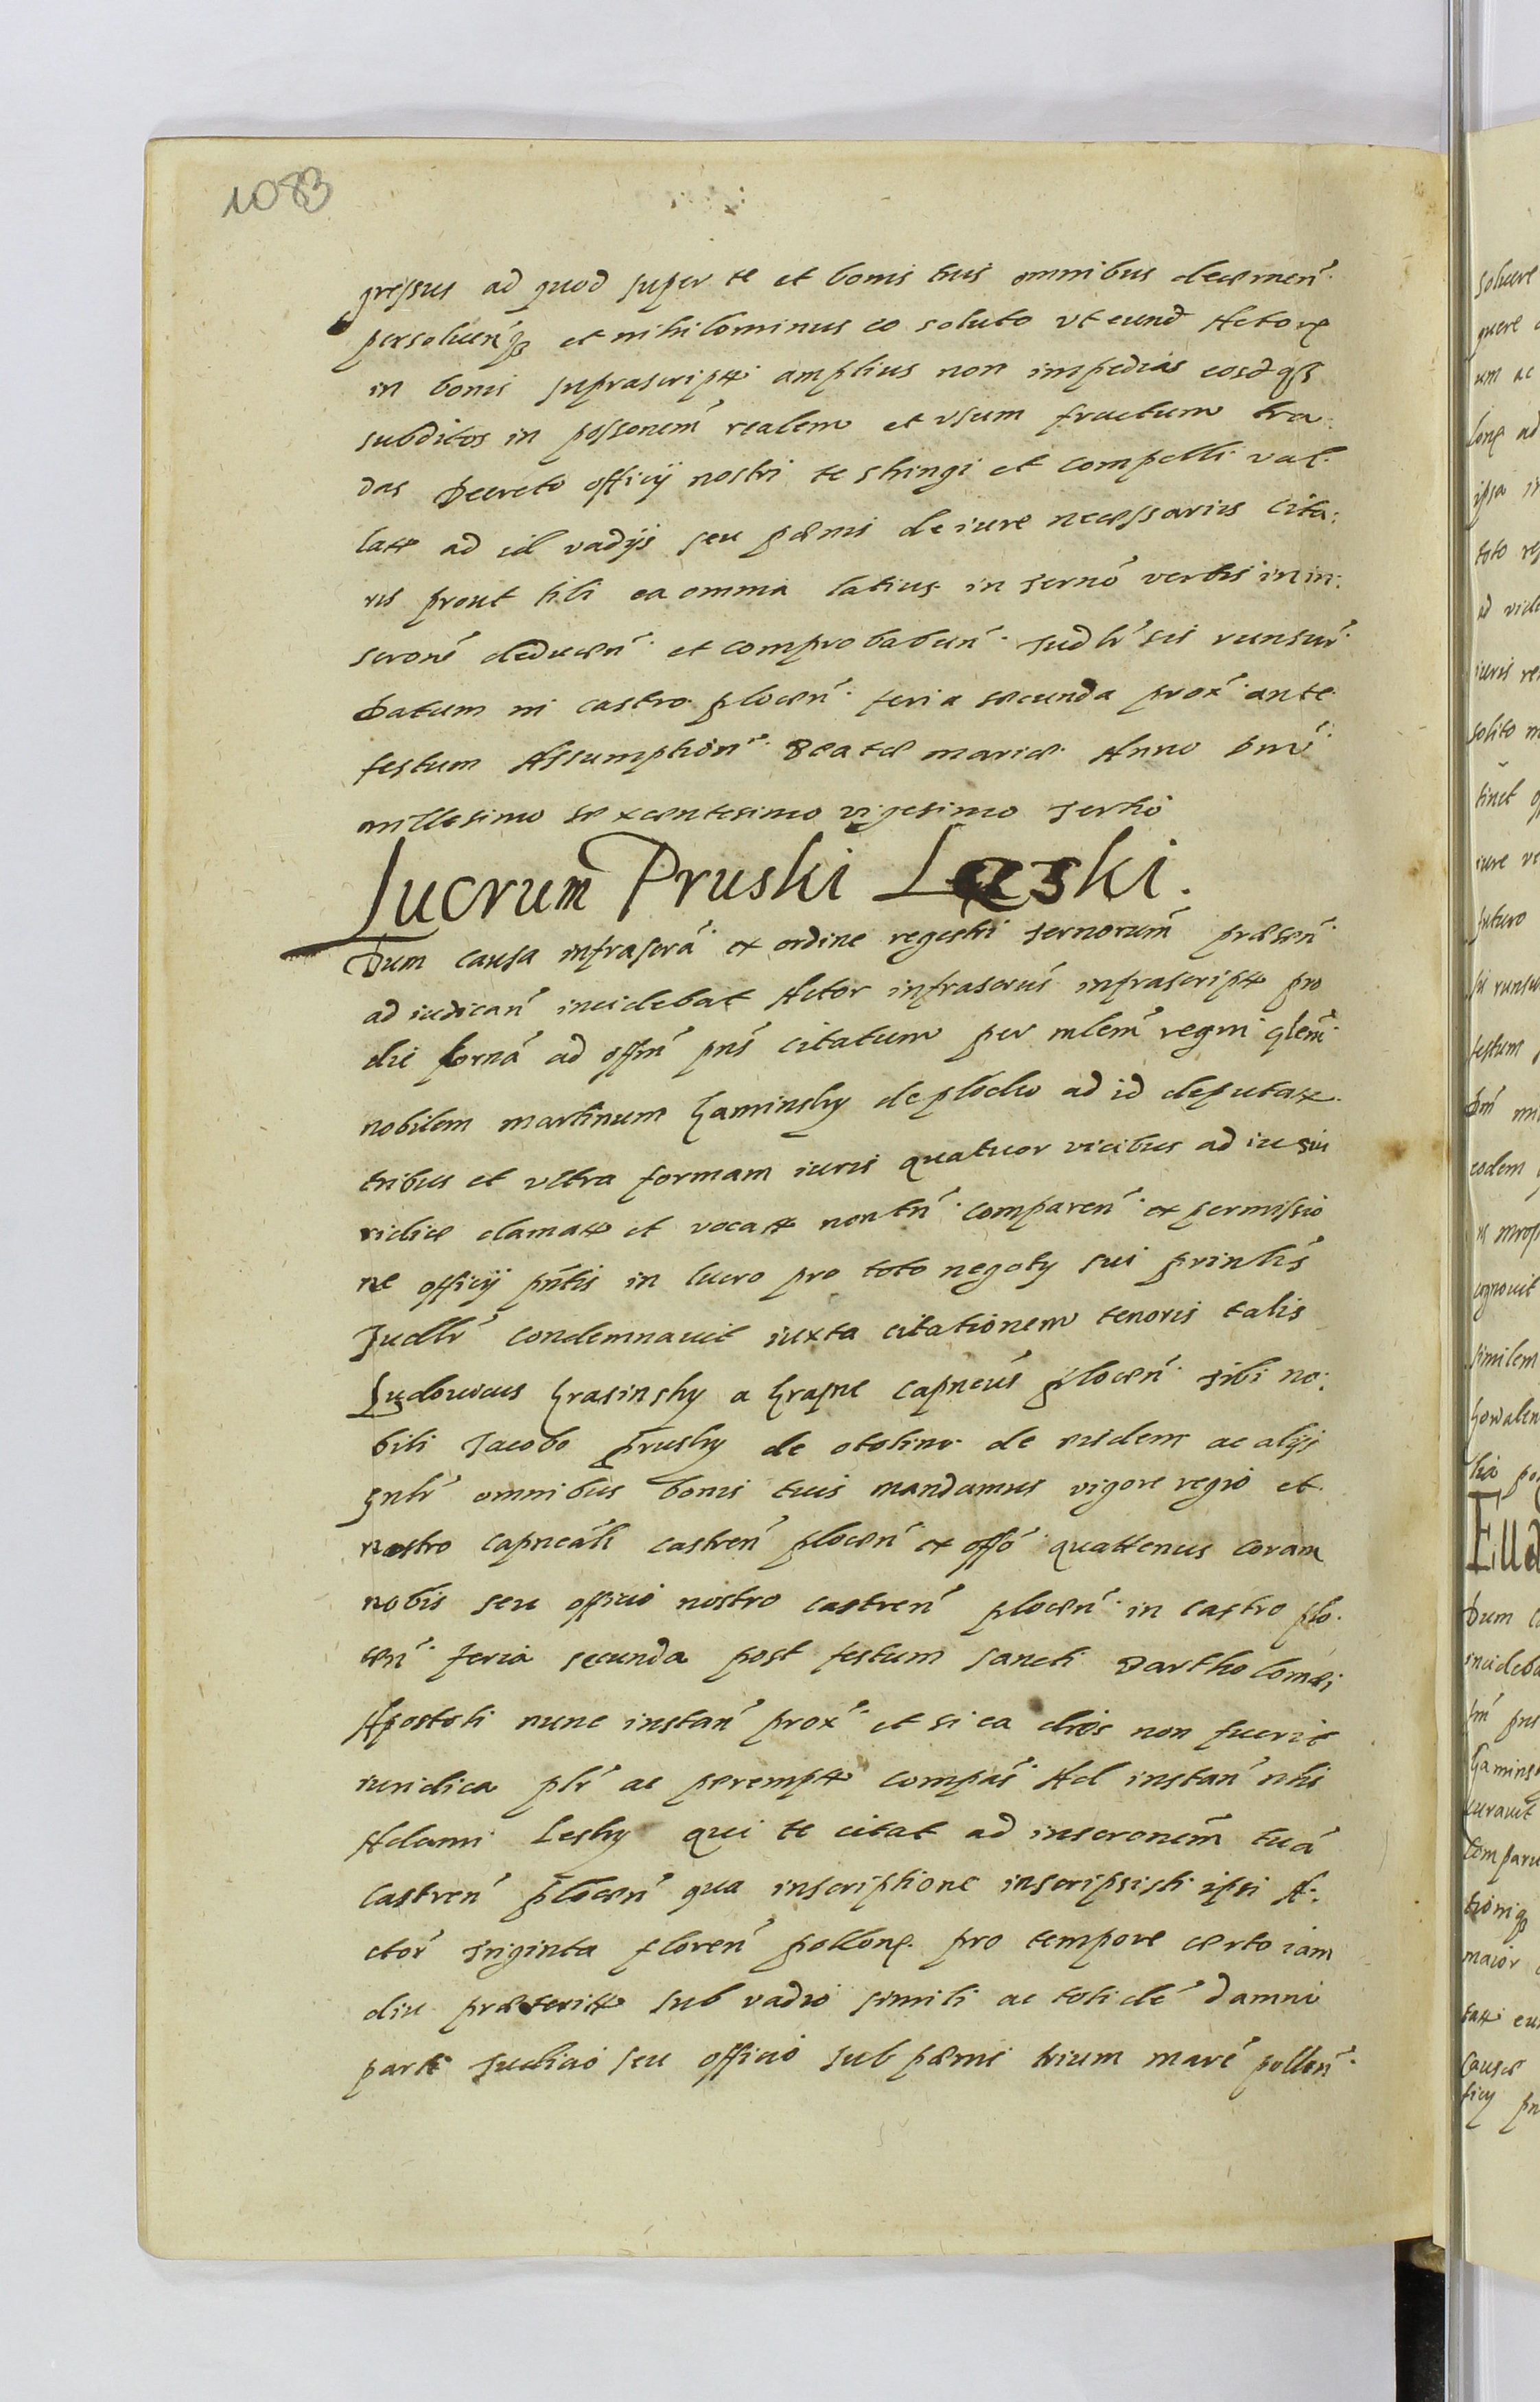 1083
gressus ad quod super te et bonis tuis omnibus decernen̄
persoluen̄q3 et nihilominus eo soluto vt eund Actorę
in bonis suprascript amplius non impedias eosdq3
subditos in possonem̄ realem et vsum fructum tra:
das Decreto officij nostri te stringi et compelli val.
latt ad id vadijs seu pænis de iure necessarijs cita:
rus prout tibi ea omnia latius in termō verbis in in:
scronē deducen̄ et comprobabun̄ Iudlr̄ sis runsur̄
Datum in castro plocen̄ feria secunda prox̄ ante
festum Assumption̄ Beatæ mariæ Anno Dnī
millesimo sexcentesimo vigesimo tertio
Lucrum Pruski Laski.
Dum causa infrascrā ex ordine regestri ternorum̄ præsen̄
ad iudican̄ incidebat Actor infrascrus̄ infrascript pro
die hornā ad offm̄ pns̄ citatum per mlem̄ regni glem̄
nobilem martinum Kaminsky de plocko ad id deputatt
tribus et vltra formam iuris quatuor vicibus ad ius iu
ridice clamatt et vocatt non tn̄ comparen̄ ex permissio
ne officij pn̄tis in lucro pro toto negoty sui prinlis̄
Iudlr̄ condemnauit iuxta citationem tenoris talis
Ludouicus Krasinsky a Krasne capneus̄ plocen̄ tibi no:
bili Iacobo Prusky de otolino de eisdem ac alijs
gnlr̄ omnibus bonis tuis mandamus vigore regio et
nostro capneāli castren̄ plocen̄ ex offō quattenus coram
nobis seu officio nostro castren̄ plocen̄ in castro plo.
cen̄ feria secunda post festum sancti Bartholomæi
Apostoli nunc instan̄ prox̄ et si ea dies non fuerit
iuridica plr̄ ac perempt compas̄ Ad instan̄ nlis̄
Adami Lesky qui te citat ad inscronem̄ tuā
castren̄ plocen̄ qua inscriptione inscripsisti ipsi A:
ctor̄ triginta floren̄ pollonę pro tempore certo iam
diu præteritt sub vadio simili ac totidē damni
parti Iudicio seu officio sub pænis trium marc̄ pollon̄